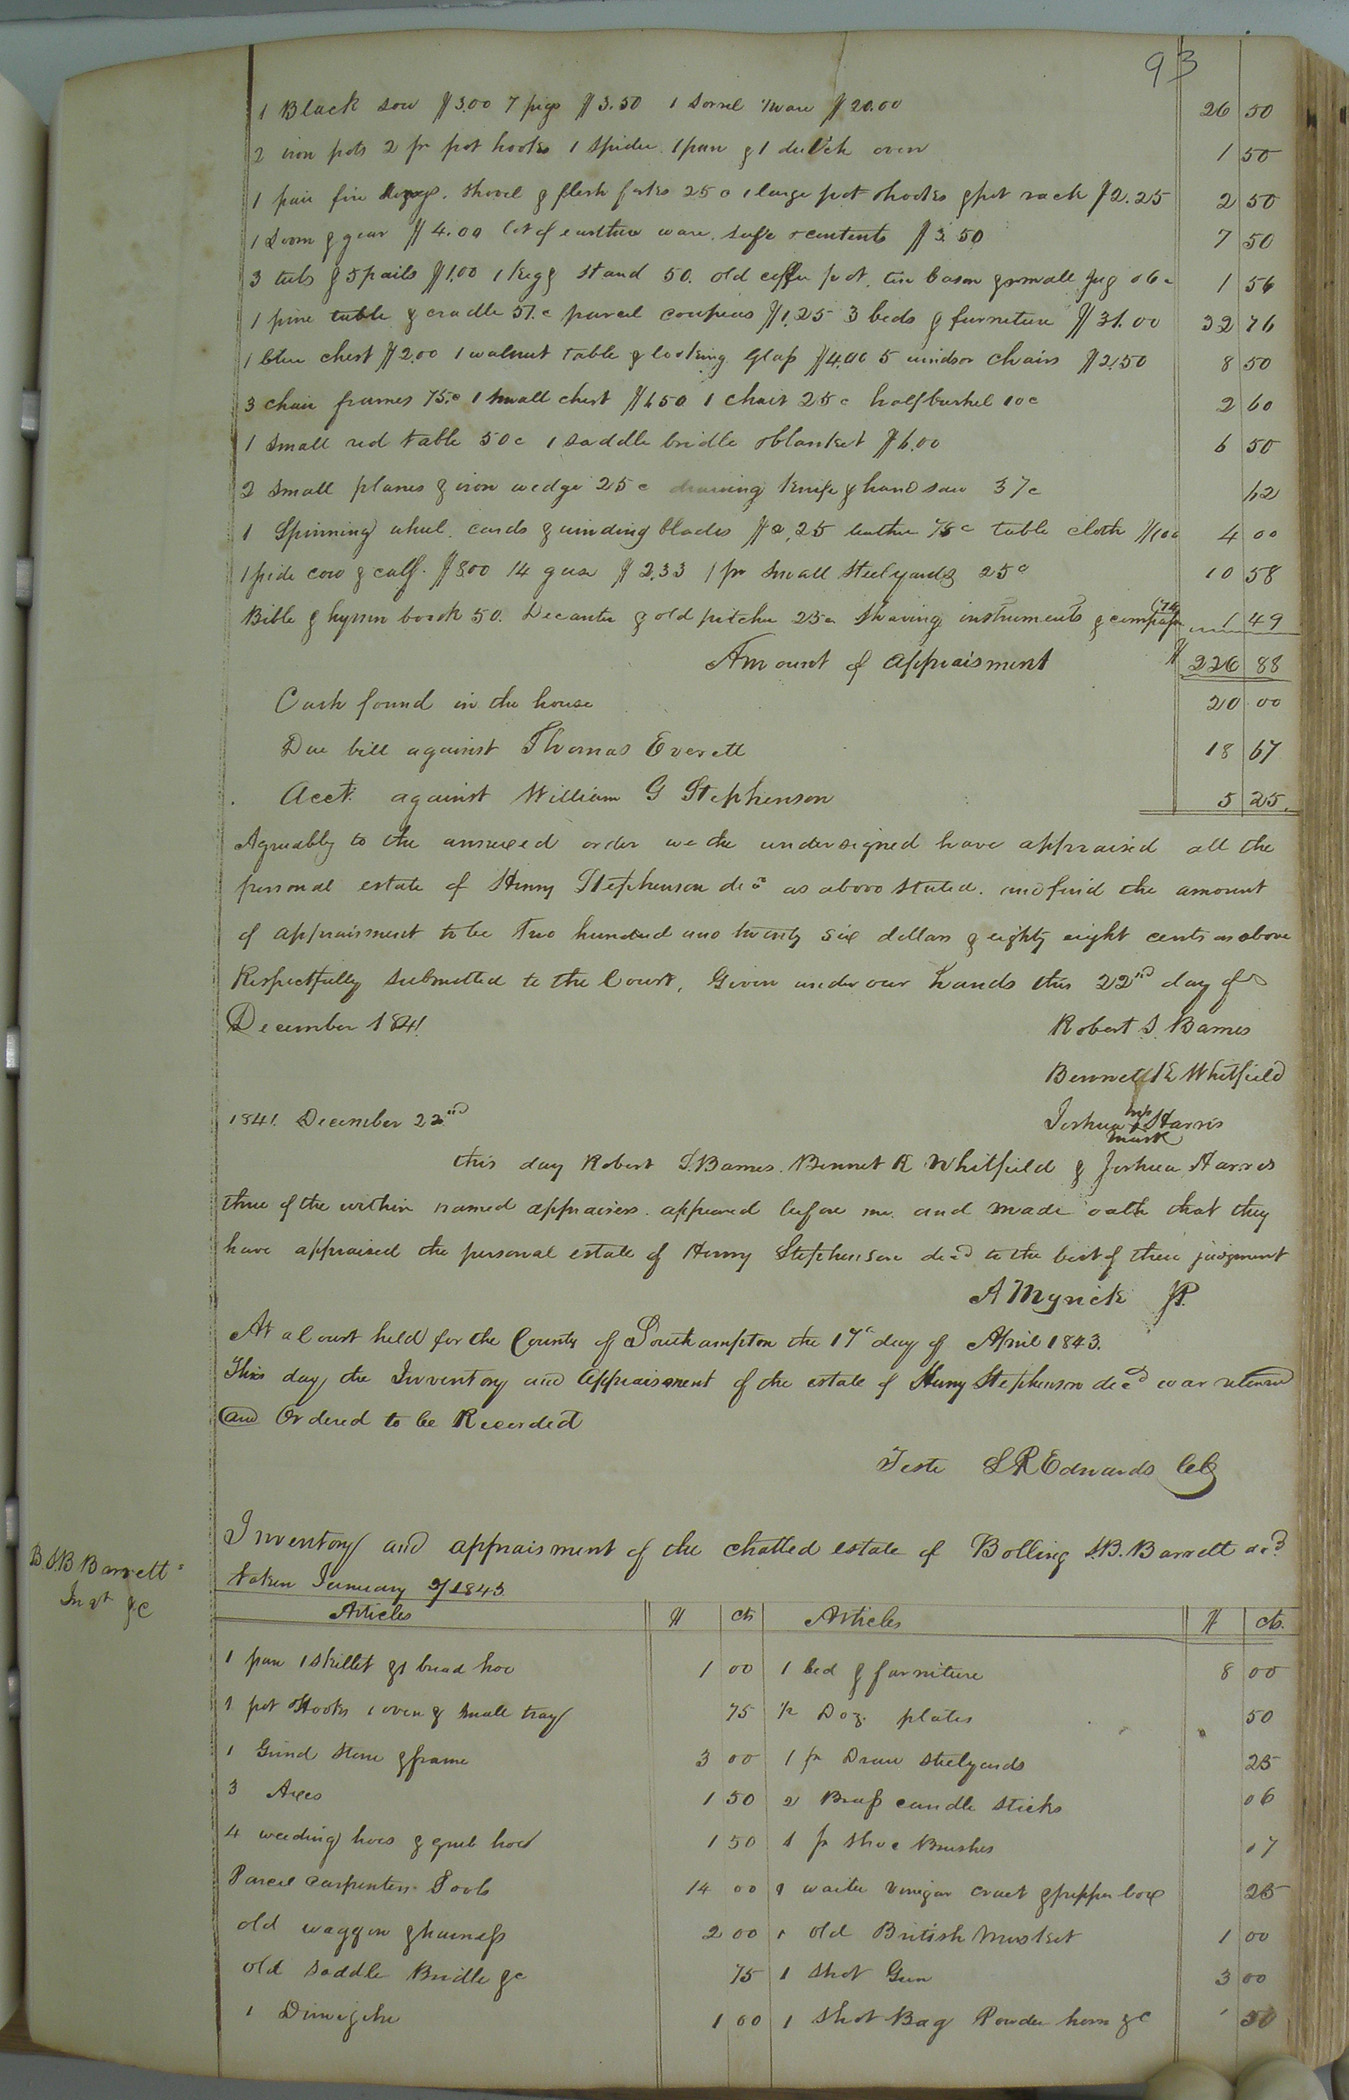 93
1 Black sow $3.00 7 pigs $3.50 1 Sorrel Mare $20.00 26 50
2 iron pots 2 pr pot hooks 1 spider 1 pan & 1 dutch oven 1 50
1 pair fire dogs. shovel & flesh forks 25c 1 large pot hooks & pot rack $2.25 2 50
1 Loom & gear $4.00 lot of earthen ware. safe & contents $3.50 7 50
3 tubs & 5 pails $1.00 1 keg & stand 50. old coffee pot. tin bason & small jug 06c 1 56
1 pine table & cradle 51.c parcel $1.25 3 beds & furniture $31.00 32 76
1 blue chest $2.00 1 walnut table & looking Glass $4.00 5 windsor chairs $2.50 8 50
3 chair frames 75.c 1 small chest $1.50 1 chair 25c half bushel 10c 2 60
1 small red table 50c 1 saddle bridle & blanket $6.00 6 50
2 small planes & iron wedge 25c drawing knife & hand saw 37c 62
1 Spinning wheel. cards & winding blades $2.25 leather 75c table cloth $100 4 00
1 pide cow & calf. $8.00 14 geese $2.33 1 pr small steelyards 25c 10 58
Bible & hymn book 50. Decanter & old pitcher 25c shaving instruments & compass (74 1 49
Amount of appraisment $ 226 88
Cash found in the house 20 00
Due bill against Thomas Everett 18 67
Acct. against William G Stephenson 5 25.
Agreeably to the annexed order we the undersigned have appraised all the
personal estate of Henry Stephenson decd as above stated. and find the amount
of appraisment to be two hundred and twenty six dollars & eighty eight cents as above
Respectfully submitted to the Court, Given under our hands this 22nd day of
December 1841 Robert S. Barnes
Bennett R Whitfield
1841. December 22nd Joshua his x mark Harris
this day Robert S. Barnes. Bennet R Whitfield & Joshua Harris
three of the within named appraisers. appeared before me. and made oath that they
have appraised the personal estate of Henry Stephenson decd to the best of their judgment
A Myrick JP.
At a Court held for the County of Southampton the 17th day of April 1843.
This day the Inventory and Appraisement of the estate of Henry Stephenson decd was returned
and Ordered to be Recorded
Teste L R Edwards CC
B. S B Barrett
Invt &C
Inventory and appraisment of the chatted estate of Bolling S. B. Barrett decd
taken January 9/1843
Articles $ cts Articles $ cts.
1 pan 1 skillet & 1 bread hoe 1 00 1 bed & furniture 8 00
1 pot Hooks 1 oven & small tray 75 1/2 Doz. plates 50
1 Grind stone & frame 3 00 1 pr Draw steelyards 25
3 Axes 1 50 2 Brass candle sticks 06
4 weeding hoes & grub hoes 1 50 1 pr shoe Brushes 07
Parcel Carpenters Tools 14 00 1 waiter vinegar cruet & pepper box 25
old waggon & harness 2 00 1 old British Musket 1 00
old saddle Bridle &c 75 1 shot Gun 3 00
1 1 00 1 shot Bag Powder horn &C 50